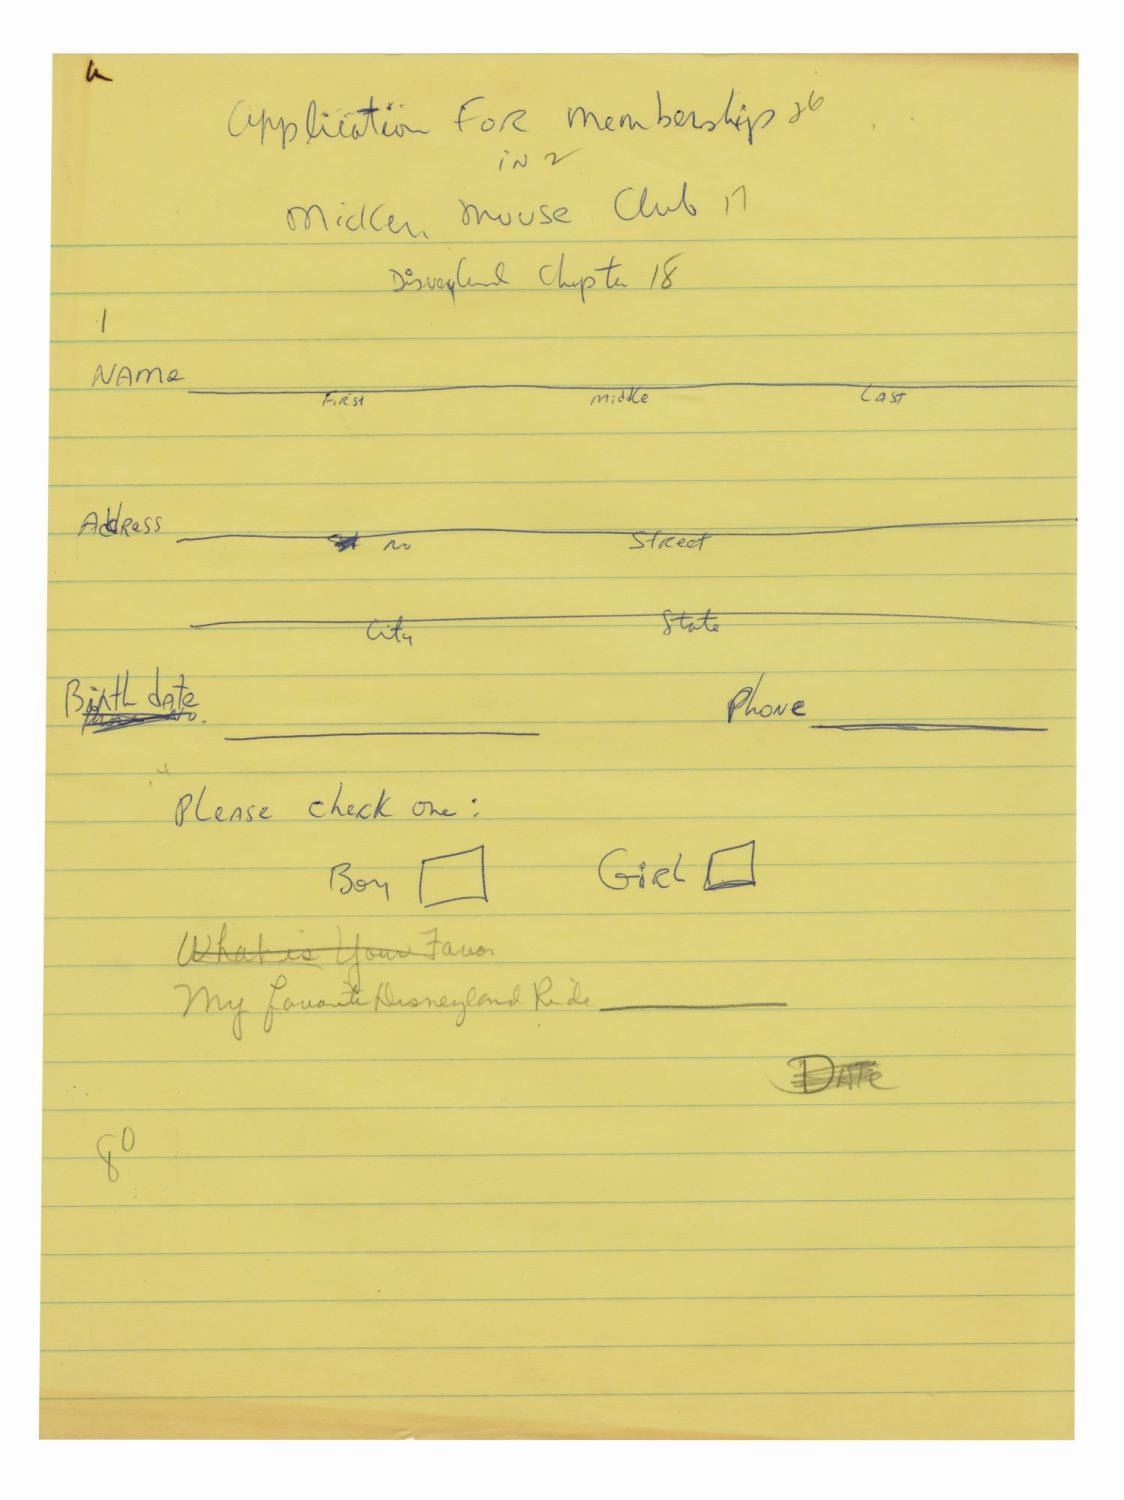 Application For membership 26
in 2
Mickey Mouse Club 17
Disneyland Chapter 18
1
Name
First Middle Last
Address
No Street
City State
Birth date Phone
Please check one:
Boy Girl
What is Your Favor
My favorite Disneyland Ride
Date
80